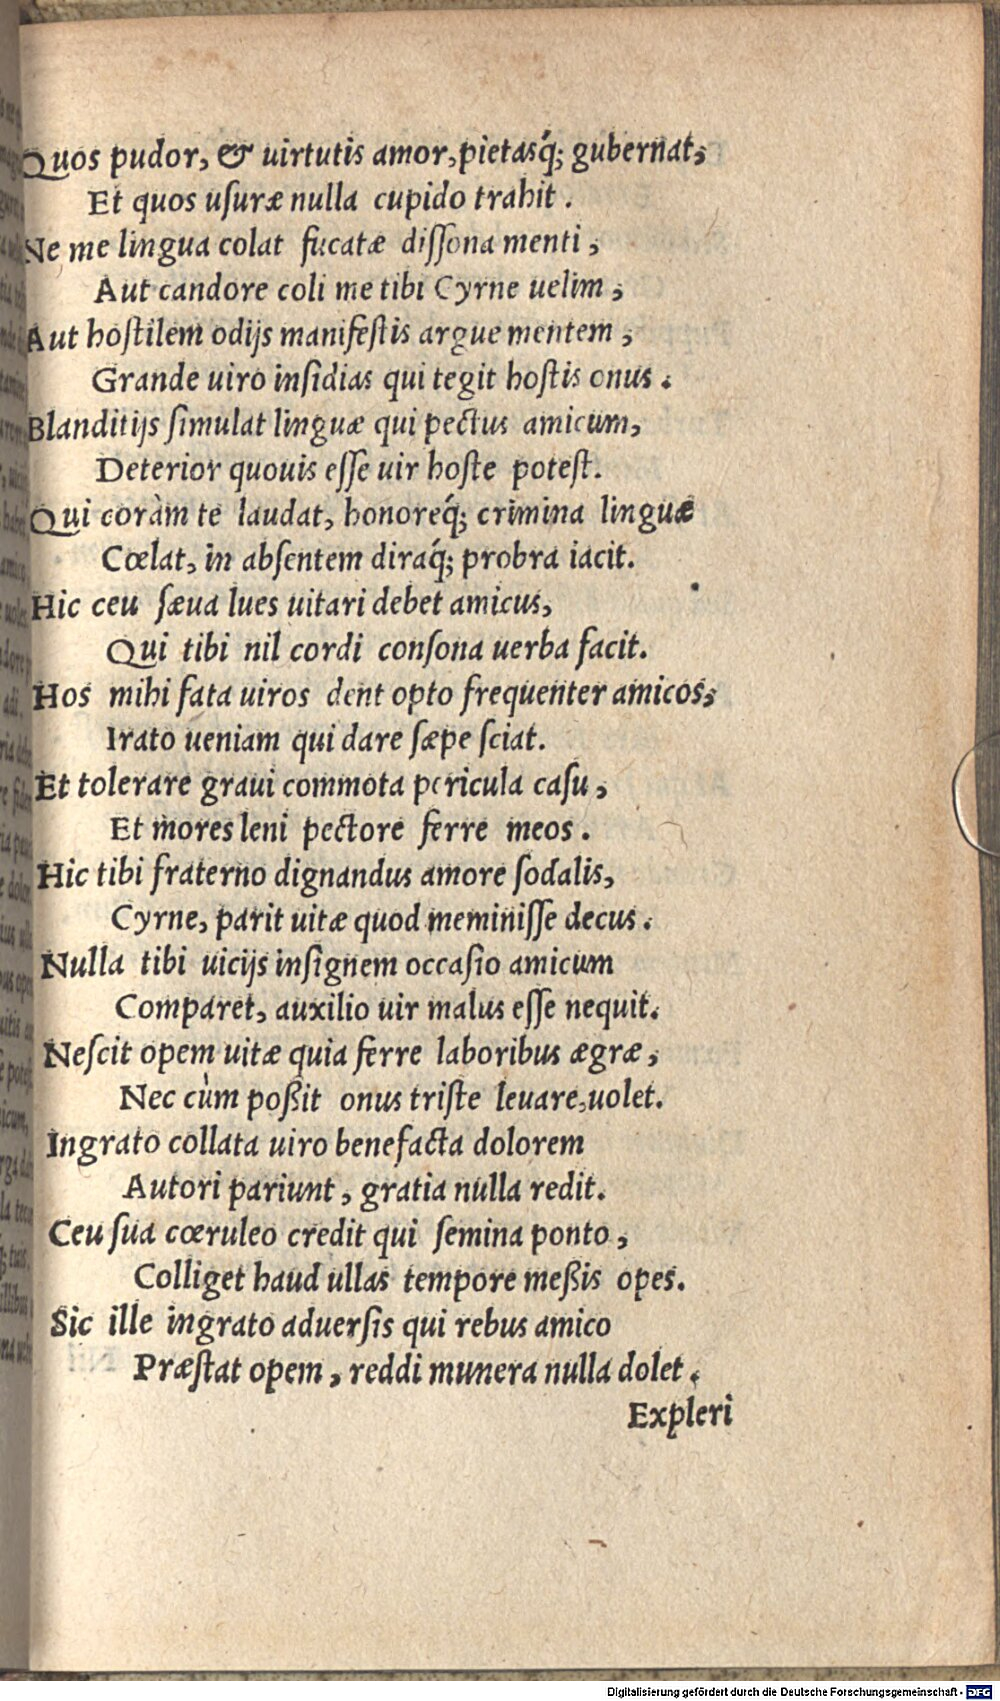 Quos pudor, & uirtutis amor, pietasq́; gubernat,
Et quos usuræ nulla cupido trahit.
Ne me lingua colat fucatæ dissona menti,
Aut candore coli me tibi Cyrne uelim,
Aut hostilem odijs manifestis argue mentem,
Grande uiro insidias qui tegit hostis onus.
Blanditijs simulat linguæ qui pectus amicum,
Deterior quouis esse uir hoste potest.
Qui coràm te laudat, honoreq́; crimina linguæ
Cœlat, in absentem diraq́; probra iacit.
Hic ceu sæua lues uitari debet amicus,
Qui tibi nil cordi consona uerba facit.
Hos mihi fata uiros dent opto frequenter amicos,
Irato ueniam qui dare sæpe sciat.
Et tolerare graui commota pericula casu,
Et mores leni pectore ferre meos.
Hic tibi fraterno dignandus amore sodalis,
Cyrne, parit uitæ quod meminisse decus.
Nulla tibi uicijs insignem occasio amicum
Comparet, auxilio uir malus esse nequit.
Nescit opem uitæ quia ferre laboribus ægræ,
Nec cùm poßit onus triste leuare, uolet.
Ingrato collata uiro benefacta dolorem
Autori pariunt, gratia nulla redit.
Ceu sua cœruleo credit qui semina ponto,
Colliget haud ullas tempore meßis opes.
Sic ille ingrato aduersis qui rebus amico
Præstat opem, reddi munera nulla dolet.
Expleri
Digitalisierung gefördert durch die Deutsche Forschungsgemeinschaft - DFG